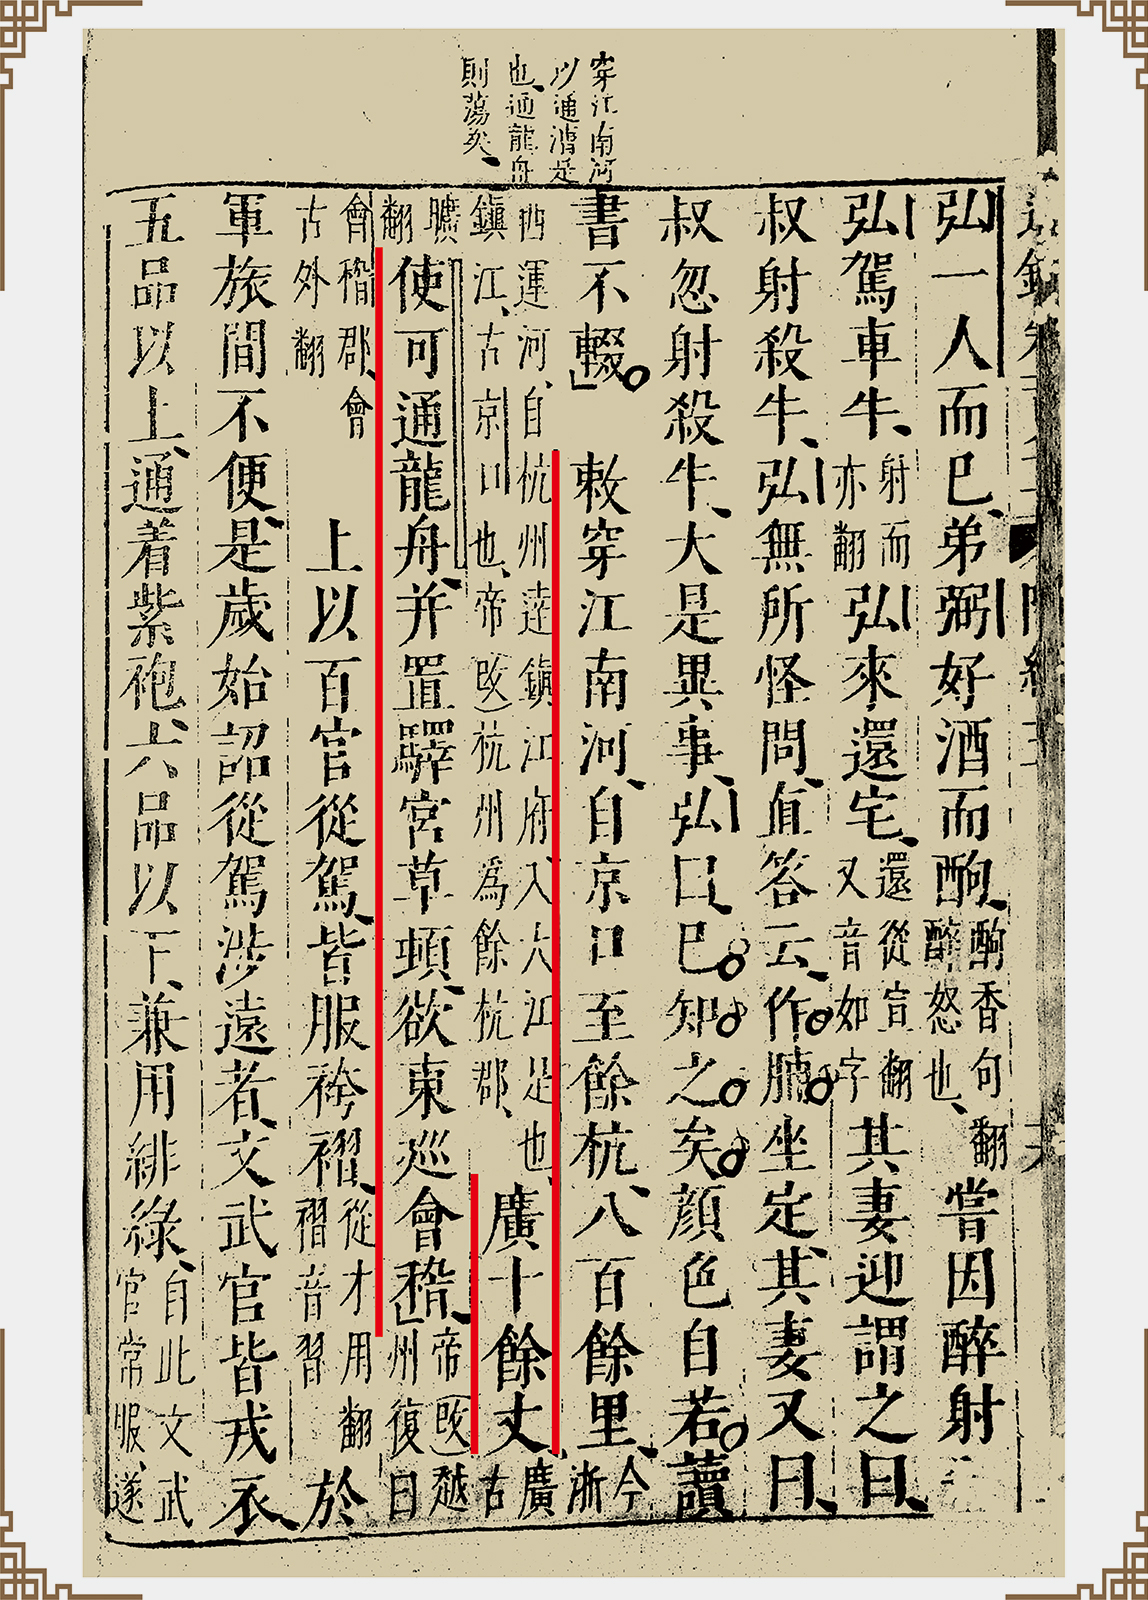 穿江南河
以通漕是
也、通龍舟
則蕩矣、
弘一人而已、弟弼好酒而酗、酗香句翻醉怒也、嘗因醉射
弘駕車牛、射而亦翻弘來還宅、還從宣翻又音如字其妻迎謂之曰、
叔射殺牛、弘無所怪問、直答云、作脯、坐定、其妻又曰、
叔忽射殺牛、大是異事、弘曰、已知之矣、顏色自若、讀
書不輟、敕穿江南河、自京口至餘杭、八百餘里、今浙
西運河、自杭州達鎮江府、入大江是也、鎮江、古京口也、帝改杭州爲餘杭郡、廣十餘丈、廣古
曠翻使可通龍舟、并置驛宮草頓、欲東巡會稽、帝改越州復曰
會稽郡、會古外翻上以百官從駕、皆服袴褶、從才用翻褶音習於
軍旅間不便、是歲始詔從駕涉遠者、文武官皆戎衣、
五品以上、通着紫袍、六品以下、兼用緋綠、自此文武官常服、遂